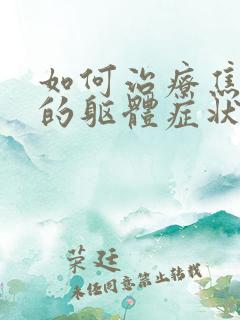 如何治療焦
的軀體症狀
荣廷
未任同意禁止转载